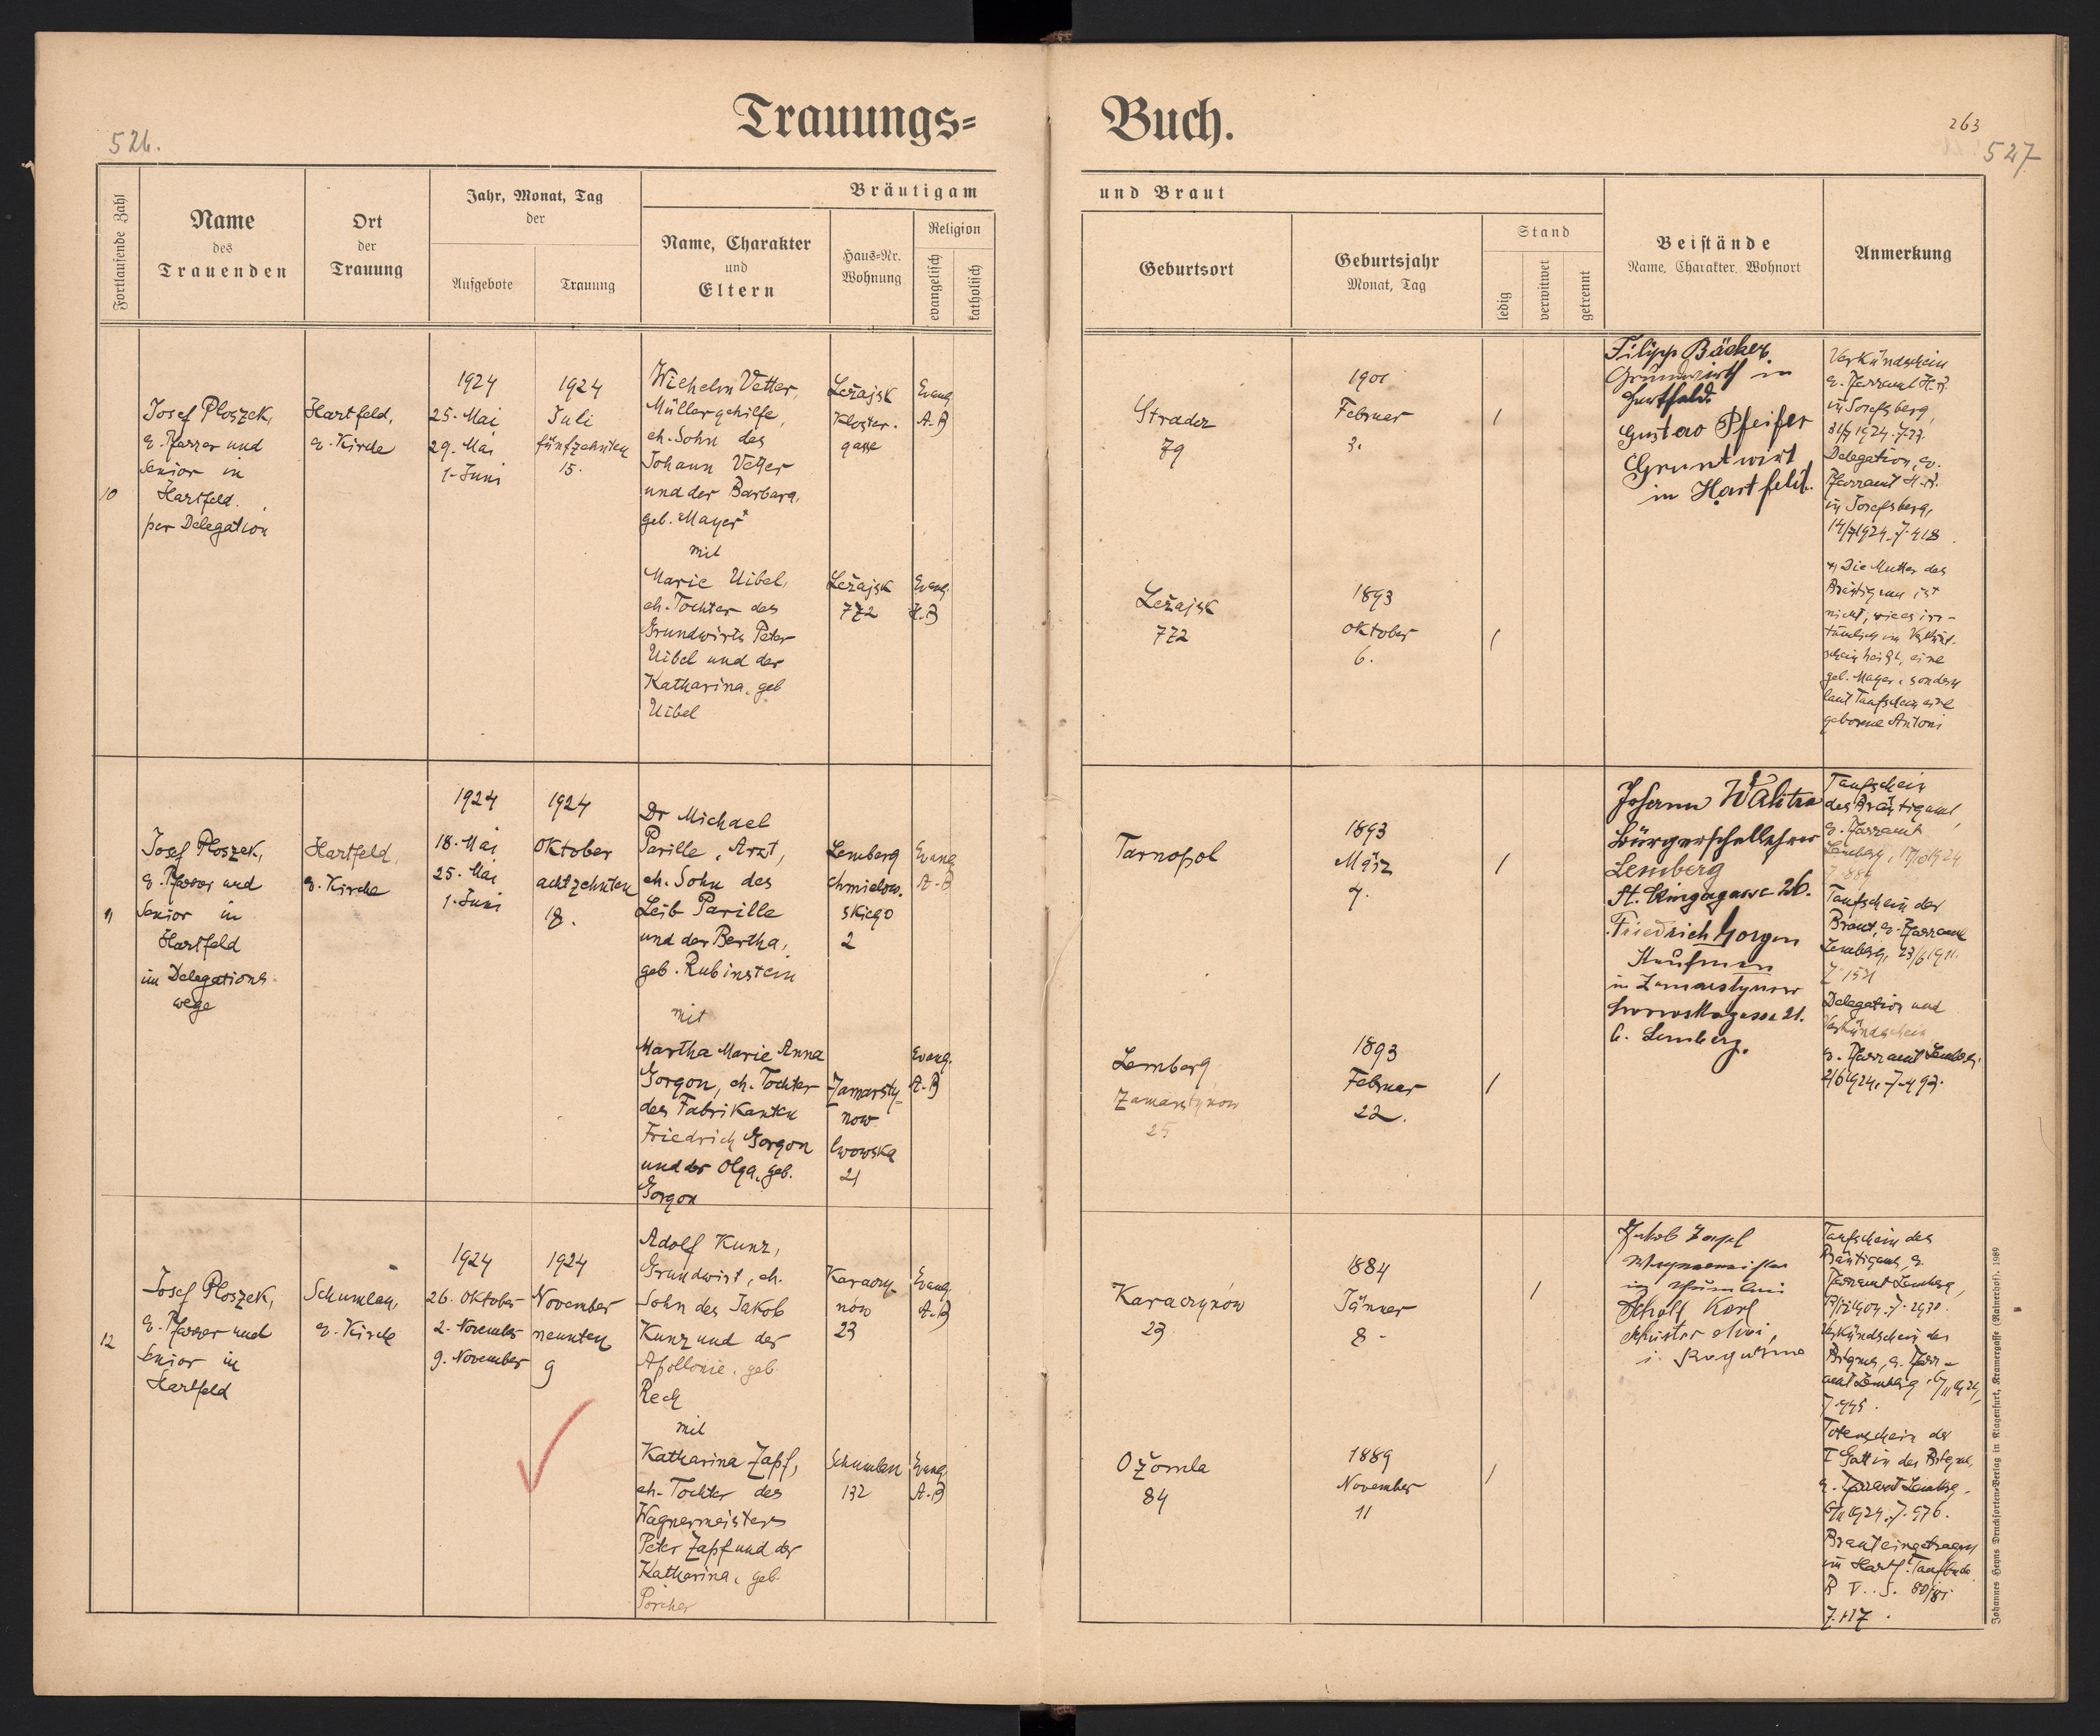 526.
Trauungs=
Buch.
263
527
Fortlaufende Zahl
Name
des
Trauenden
Ort
der
Trauung
Jahr, Monat, Tag
der
Aufgebote
Trauung
Bräutigam
Name, Charakter
und
Eltern
Haus=Nr.
Wohnung
Religion
evangelisch
katholisch
und Braut
Geburtsort
Geburtsjahr
Monat, Tag
Stand
ledig
verwitwet
getrennt
Beistände
Name, Charakter, Wohnort
Anmerkung
10
Josef Ploszek,
e. Pfarrer und
Senior in
Hartfeld.
per Delegation
Hartfeld,
e. Kirche
1924
25. Mai
29. Mai
1. Juni
1924
Juli
fünfzehnten
15.
Wilhelm Vetter,
Müllergehilfe,
eh. Sohn des
Johann Vetter
und der Barbara,
geb. Mayer
mit
Marie Uibel,
eh. Tochter des
Grundwirts Peter
Uibel und der
Katharina, geb
Uibel
Ležajsk
Kloster.
gasse
Evang.
A.B
Ležajsk
772
Evang.
H.B
Stradcz
79
1901
Februar
3.
/
Ležajsk
772
1893
Oktober
6.
/
Filipp Bäcker
Grunwirth in
Hartfeld.
Gustav Pfeifer
Gruntwirt
in Hartfeld.
Verkündschein
e. Pfarramt H.B.
in Josefsberg,
Delegation, ev.
Pfarramt H.B.
in Josefsberg,
14/7 1924. Z. 418
Die Mutter des
Bräutigams ist
nicht, wie es irr-
tümlich im Verkünd-
schein heißt, eine
geb. Mayer, sondern
laut Taufschein eine
geborene Antoni
11
Josef Ploszek,
e. Pfarrer und
Senior in
Hartfeld
im Delegations-
wege
Hartfeld,
e. Kirche
1924
18. Mai
25. Mai
1. Juni
1924
Oktober
achtzehnten
18.
Dr Michael
Parille, Arzt,
eh. Sohn des
Leib Parille
und der Bertha,
geb. Rubinstein
mit
Martha Marie Anna
Gorgon, eh. Tochter
des Fabrikanten
Friedrich Gorgon
und der Olga, geb.
Gorgon
Lemberg
Chmielow.
skiego
2
Evang
A.B
Zamarsty-
now
lwowska
21
Evang.
A.B
Tarnopol
1893
März
7.
/
Lemberg
Zamarstynow
25
1893
Februar
22.
/
Johann Walitza
Bürgerschullehrer
Lemberg
St. Kingagasse 26.
Friedrich Gorgon
Kaufmann
in Zamarstynow
Lwowskagasse 21.
b. Lemberg.
Taufschein
des Bräutigams,
e. Pfarramt
Lemberg,
Taufschein der
Braut, e. Pfarramt
Lemberg, 23/6 1911.
Delegation und
Verkündschein
e. Pfarramt Lemberg,
2/6 1924, Z. 493.
12
Josef Ploszek,
e. Pfarrer und
Senior in
Hartfeld
Schumlau,
e. Kirche
1924
26. Oktober
2. November
9. November
1924
November
neunten
9
Adolf Kunz,
Grundwirt, eh.
Sohn des Jakob
Kunz und der
Apollonie, geb
Rech
mit
Katharina Zapf,
eh. Tochter des
Wagnermeisters
Peter Zapf und der
Katharina, geb
Porcher
Karaczy-
nów
23
Evang.
A.B
Schumlau
132
Evang.
A.B
Karaczynów
23
1884
Jänner
8.
/
Ožomla
84
1889
November
11
/
Jakob Zapf
Wagnermeister
in Schumlau
Scholl Karl
Taufschein des
Bräutigams, e.
Pfarramt Lemberg,
Verkündschein des
Btgms, e. Pfarr-
amt Lemberg,
Totenschein der
I Gattin des Btgms,
e. Pfarramt Lemberg,
Z. 976.
Braut eingetragen
im Hartf. Taufbuche
Z. 117.
Johannes Heyns Drucksorten=Verlag in Klagenfurt, Kramergasse (Rainerhof). 1989